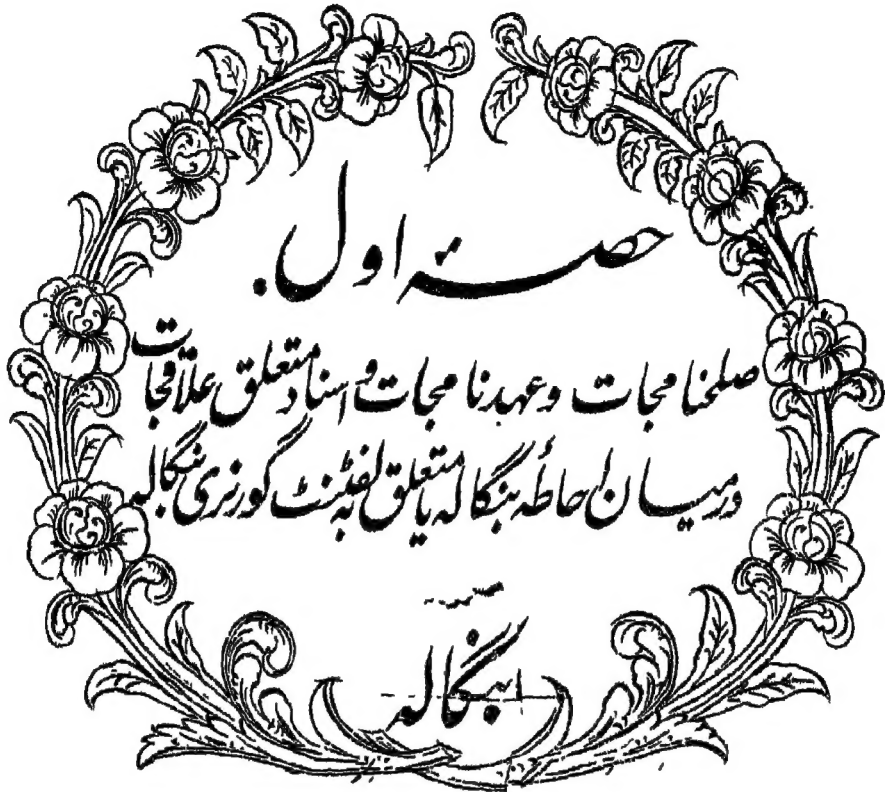 حصہ اول
صلحنامجات وعہدنامجات و اسناد متعلق علاقجات
درمیان احاطۂ بنگالہ یا متعلق بہ لفٹننٹ گورنری بنگالہ
بنگالہ